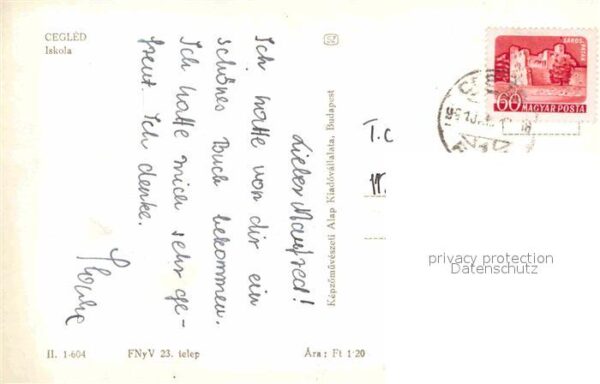 CEGLÉD
Iskola
Lieber Manfred!
Ich hatte von dir ein
schönes Buch bekommen.
Ich hatte mich sehr ge-
freut. Ich denke.
Képzőművészeti Alap Kiadóvállalata, Budapest
II. 1-604
FNyV 23. telep
Ára: Ft 1·20
T.C
60
MAGYAR POSTA
privacy protection
Datenschutz